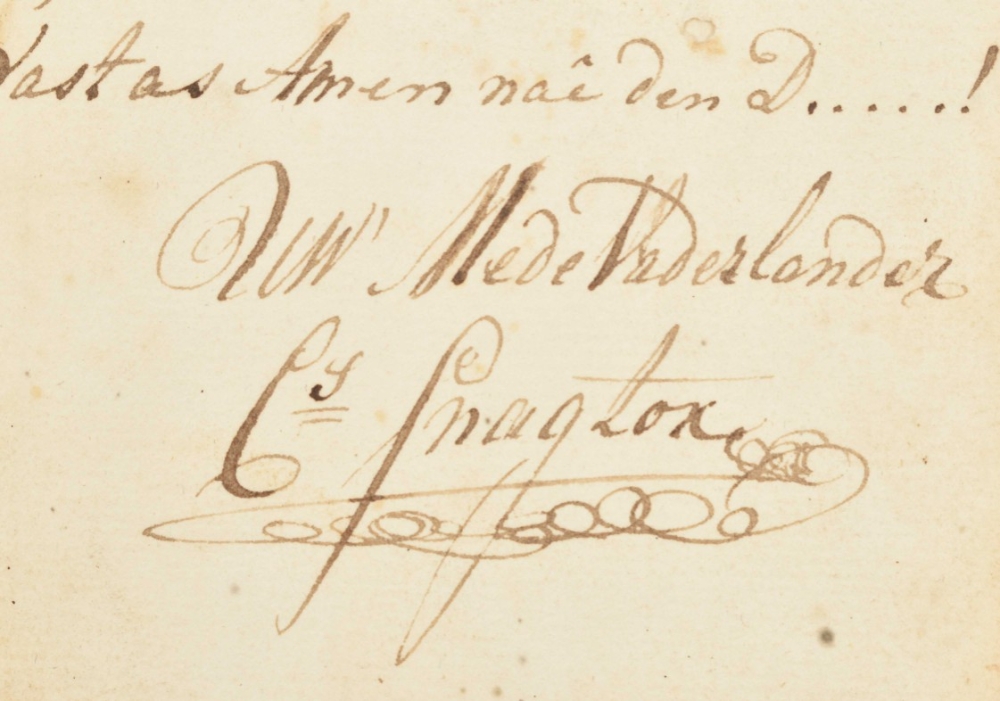 Vast as Amen naê den D......!
UW Mede Vaderlander
Cs Snaqtox